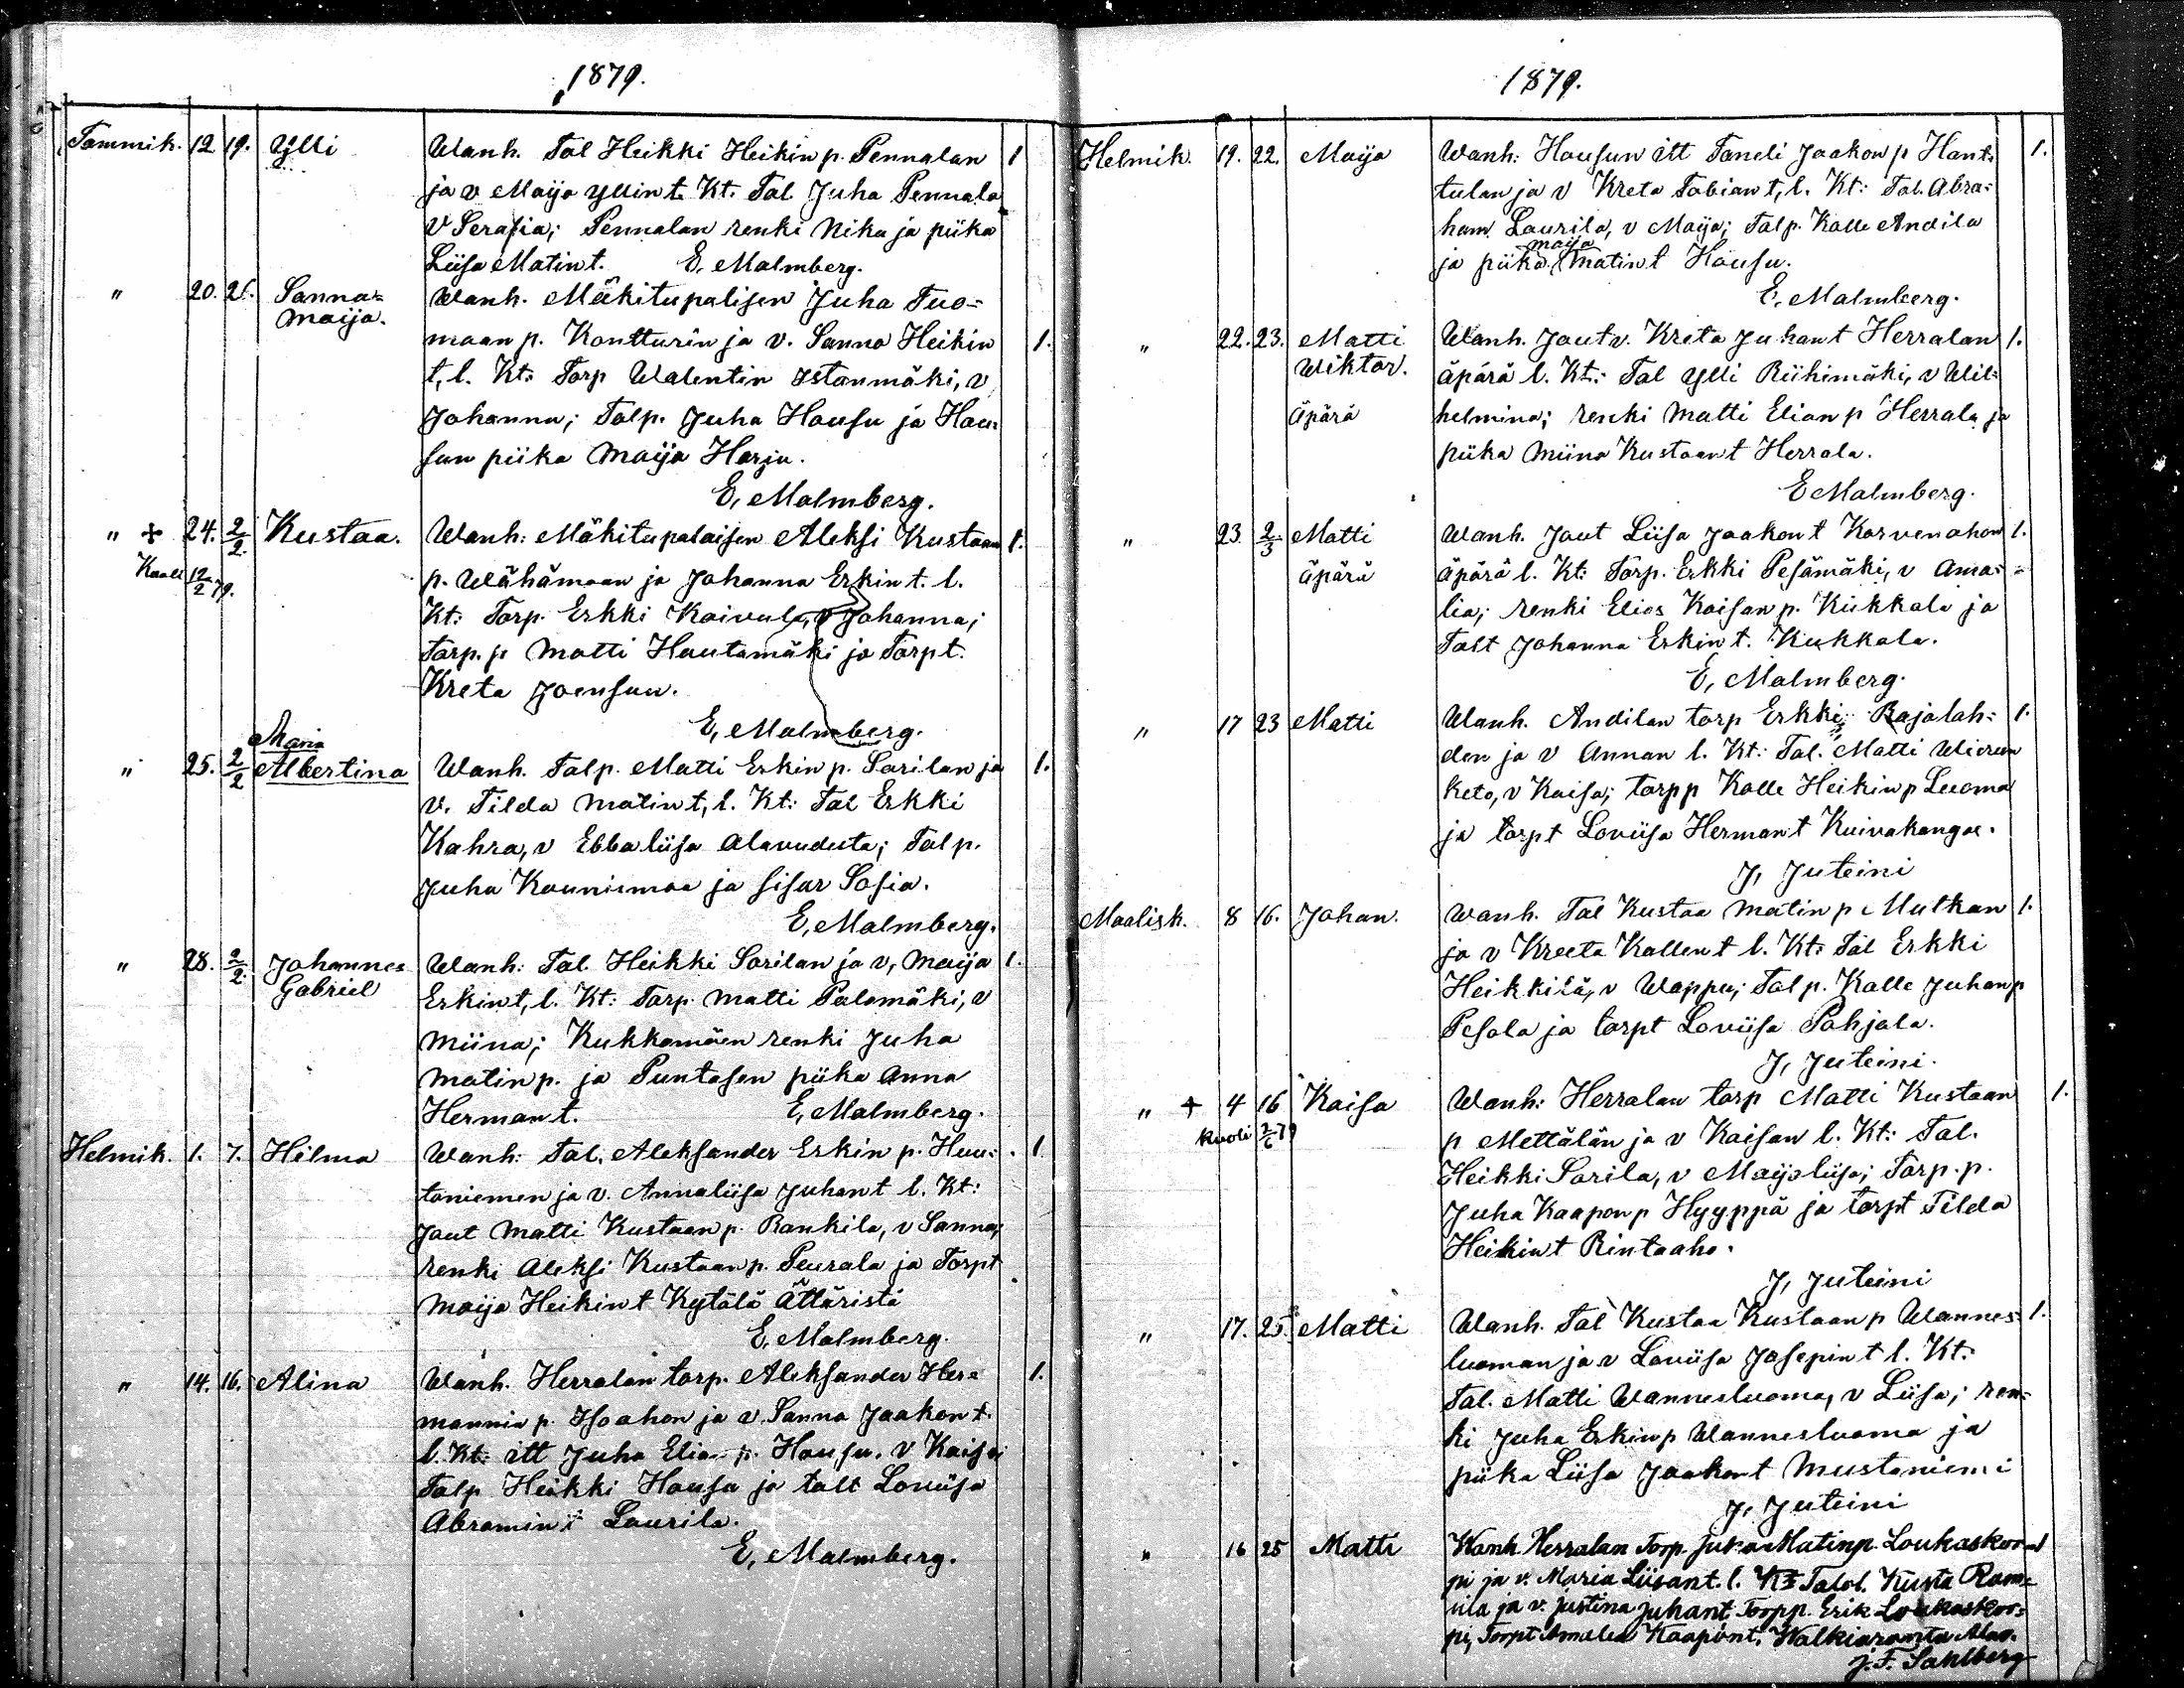 1879.
Tammik. 12 19. Ylli Wanh. Tal Heikki Heikin p. Pennalan 1
ja v Maija Yllin t. Kt: Tal. Juha Pennala
v Serafia; Pennalan renki Nika ja piika
Liisa Matin t. E. Malmberg.
" 20. 26. Sanna= Wanh. Mäkitupalisen Juha Tuo=
Maija. maan p. Kontturin ja v. Sanna Heikin 1.
t, l. Kt: Torp Walentin Istanmäki, v
Johanna; Talp. Juha Hausu ja Hau=
sun piika Maija Harju.
E, Malmberg.
" + 24. 2/2. Kustaa. Wanh: Mäkitupalaisen Aleksi Kustaan 1.
Kuoli 12/2 79. p. Wähämaan ja Johanna Erkin t. l.
Kt: Torp. Erkki Kaivula, v Johanna;
Torp. p Matti Hautamäki ja Torpt.
Kreta Joensuu.
E, Malmberg.
Maria
" 25. 2/2 Albertina Wanh. Talp. Matti Erkin p. Sarilan ja 1.
v. Tilda Matin t, l. Kt: Tal Erkki
Kahra, v Ebbaliisa Alavudesta; Talp.
Juha Kauniimaa ja sisar Sofia.
E, Malmberg.
" 28. 2/2. Johannes Wanh: Tal. Heikki Sarilan ja v, Maija 1.
Gabriel Erkin t, l. Kt: Torp. Matti Palomäki, v
Miina; Kukkamäen renki Juha
Matin p. ja Puntasen piika Anna
Herman t. E, Malmberg.
Helmik. 1. 7. Hilma Wanh: Tal. Aleksander Erkin p. Huu= 1
toniemen ja v. Annaliisa Juhan t l. Kt:
Jaut Matti Kustaan p. Rankila, v Sanna;
renki Aleksi Kustaan p. Peurala ja Torpt
Maija Heikin t Kytölä Ättäristä
E, Malmberg.
" 14. 16. Alina Wanh. Herralan torp. Aleksander Her= 1.
mannin p. Isoahon ja v. Sanna Jaakon t.
l. Kt: itt Juha Elian p. Hausu, v Kaisa;
Talp Heikki Hausu ja talt Loviisa
Abramin t Laurila.
E, Malmberg.
1879.
Helmik. 19. 22. Maija Wanh: Hausun itt Taneli Jaakon p Hant= 1.
tulan ja v Kreta Tobian t, l. Kt: Tal. Abra=
ham Laurila, v Maija; Talp. Kalle Andila
maija
ja piika Matin t Hausu.
E, Malmberg.
" 22. 23. Matti Wanh. Jaut v. Kreta Juhan t Herralan 1.
Wiktor. äpärä l. Kt: Tal Ylli Riihimäki, v Wil=
äpärä helmina; renki Matti Elian p Herrala ja
piika Miina Kustaan t Herrala.
E Malmberg.
" 23 2/3 Matti Wanh. Jaut Liisa Jaakon t Korvenahon 1.
äpärä äpärä l. Kt: Torp. Erkki Pesämäki, v Ama=
lia; renki Elias Kaisan p. Kukkala ja
Talt Johanna Erkin t. Kukkala.
E, Malmberg.
" 17 23 Matti Wanh. Andilan torp Erkki Rajalah= 1.
den ja v Annan l. Kt: Tal. Matti Wieru
keto, v Kaisa; torpp Kalle Heikin p Luoma
ja torpt Loviisa Herman t Kuivakangas.
J, Juteini
Maalisk. 8 16. Johan. Wanh. Tal Kustaa Matin p Mutkan 1.
ja v Kreeta Kallen t l. Kt: Tal Erkki
Heikkilä, v Wappu; Talp. Kalle Juhan p
Pesola ja torpt Loviisa Pohjala.
J, Juteini.
" + 4 16 Kaisa Wanh: Herralan torp Matti Kustaan 1.
kuoli 2/6 79 p Mettälän ja v Kaisan l. Kt: Tal.
Heikki Sarila, v Maijaliisa; Torp. p.
Juha Kaapon p Hyyppä ja torpt Tilda
Heikin t Rintaaho.
J, Juteini
" 17. 25. Matti Wanh. Tal Kustaa Kustaan p Wannes= 1.
luoman ja v Loviisa Josepin t l. Kt:
Tal. Matti Wannesluoma, v Liisa; ren=
ki Juha Erkin p Wannesluoma ja
piika Liisa Jaakon t Mustaniemi
J, Juteini
" 16 25 Matti Wanh Herralan Torp. Juha Matinp. Loukaskor= 1
pi ja v. Maria Liisant. l. Kt Talol. Kusta Ram=
ila ja v. Justina Juhant Torpp. Erik Loukaskor=
pi, Torpt Amalia Kaapont. Walkiaranta Alav.
J. F. Sahlberg